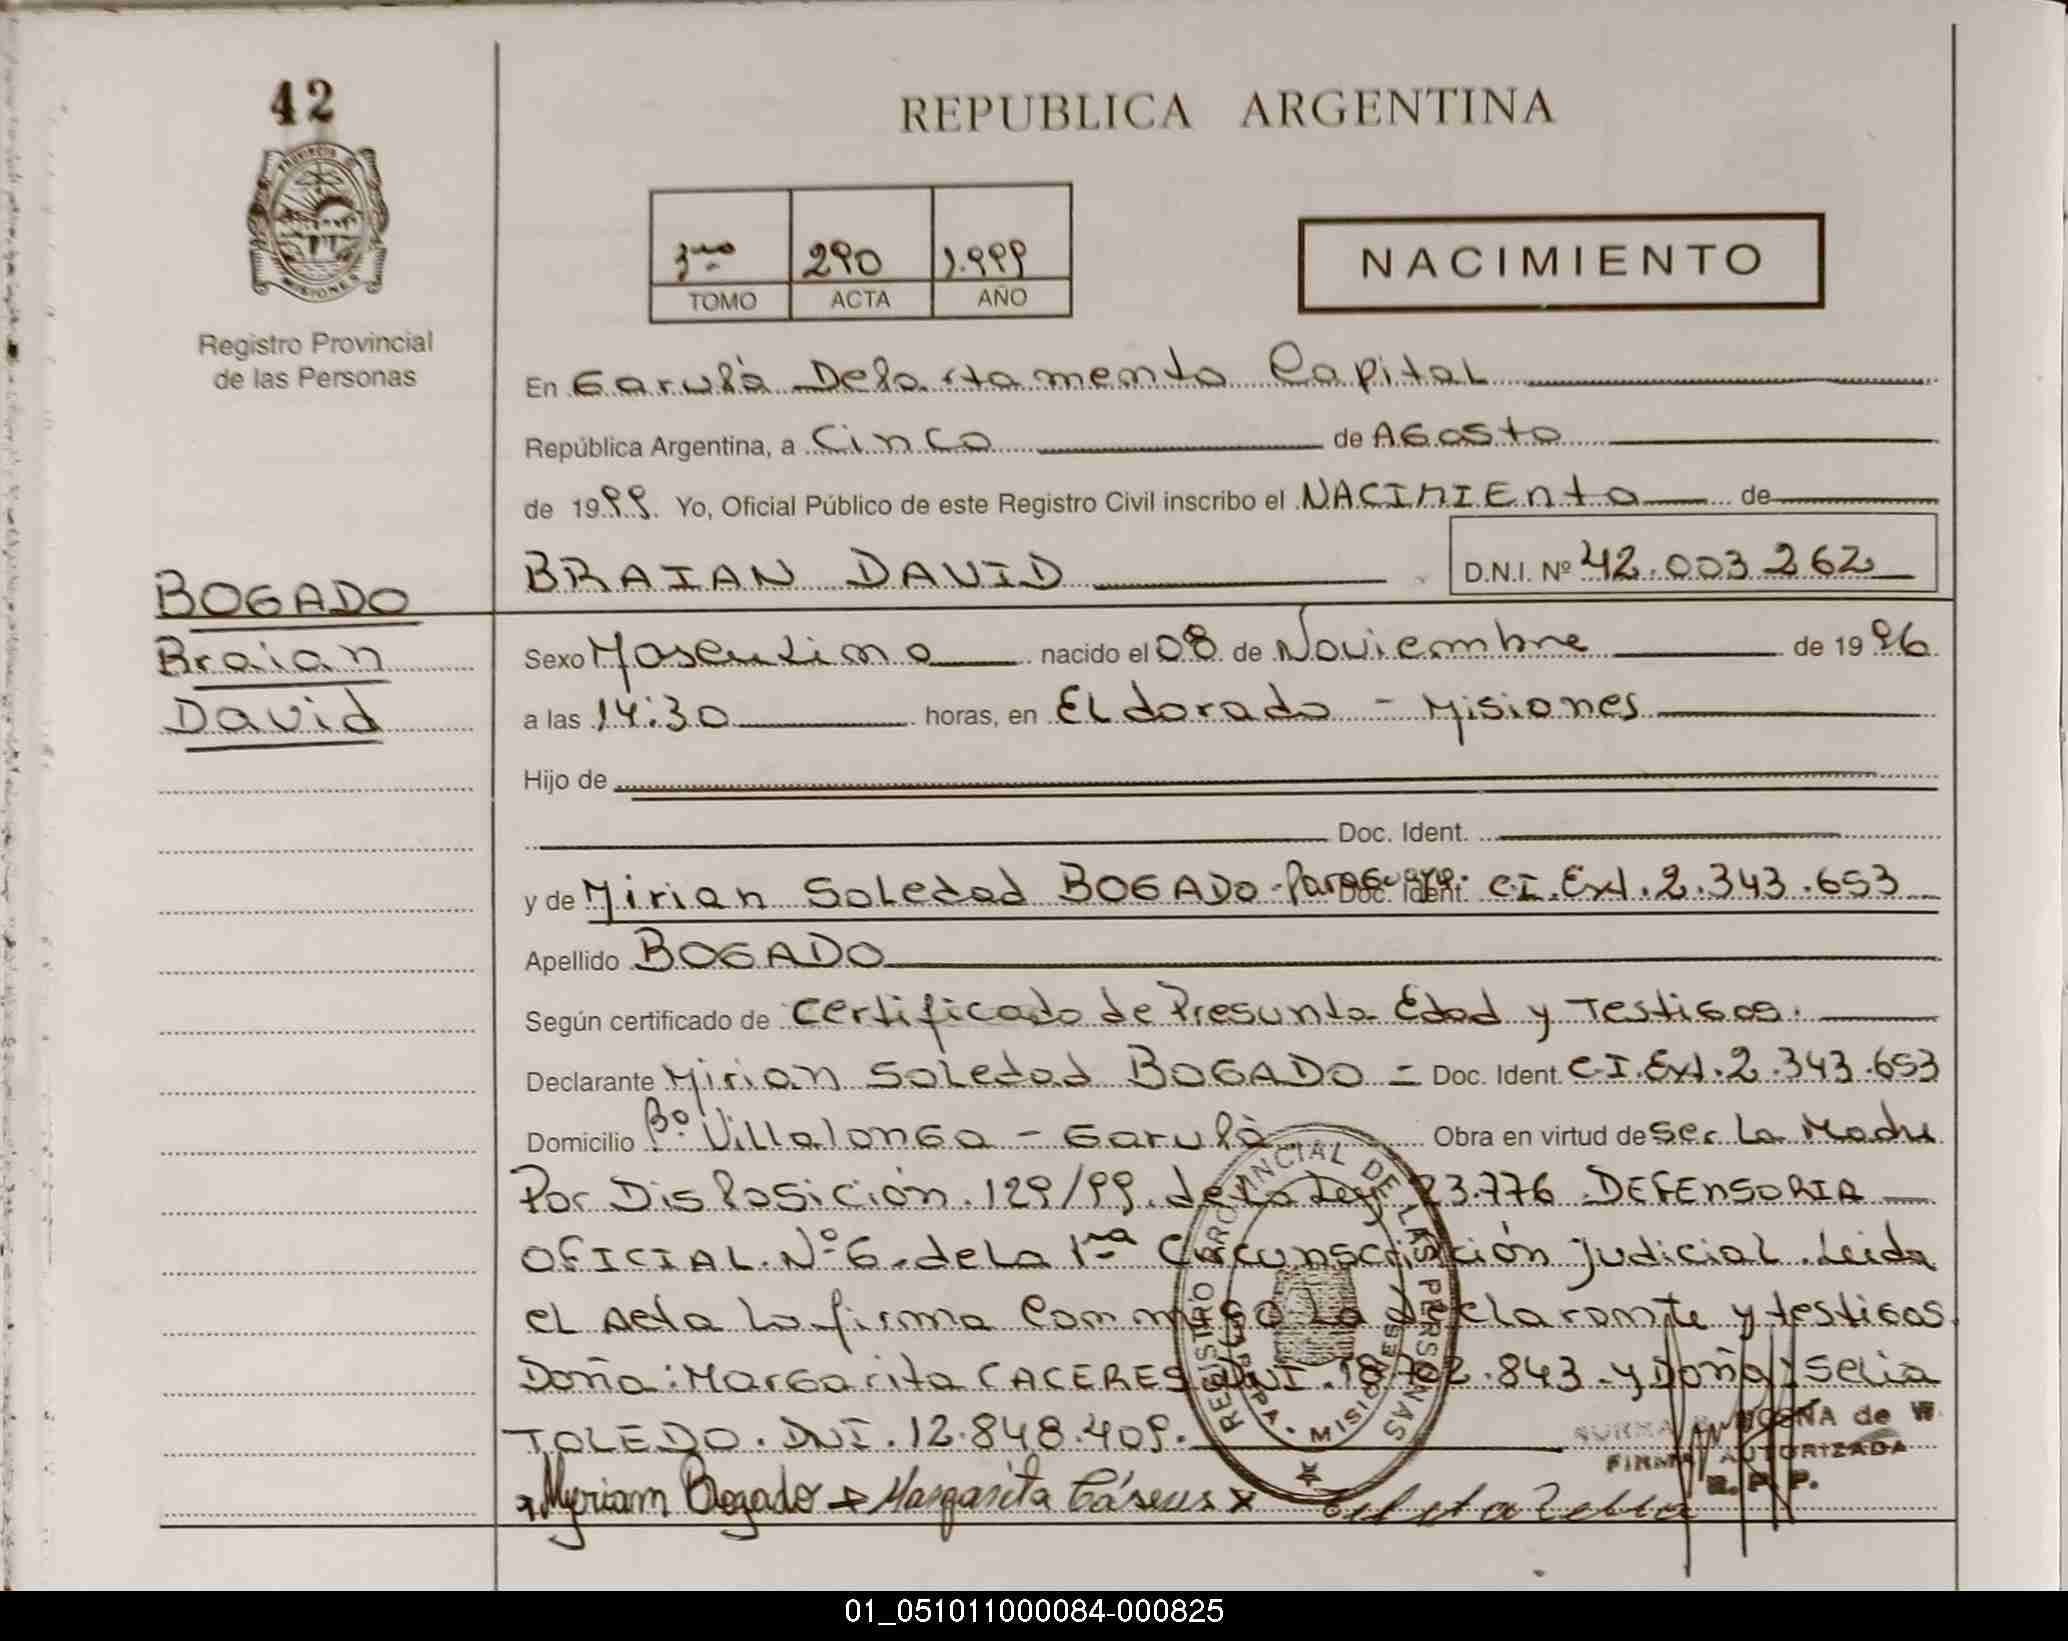 42
REPUBLICA ARGENTINA
PROVINCIA DE
MISIONES
Registro Provincial
de las Personas
3ro 290 1.999
TOMO ACTA AÑO
NACIMIENTO
En Garupá Departamento Capital
República Argentina, a Cinco de Agosto
de 1999. Yo, Oficial Público de este Registro Civil inscribo el NACIMIEnto de
BRAIAN DAVID D.N.I. Nº 42.003.262
BOGADO
Braian
David
Sexo Masculino nacido el 08 de Noviembre de 1996
a las 14:30 horas, en Eldorado - Misiones
Hijo de
Doc. Ident.
y de Mirian Soledad BOGADO - Paraguaya. Doc. Ident. C.I. Ext. 2.343.653
Apellido BOGADO
Según certificado de Certificado de Presunta Edad y Testigos.
Declarante Mirian Soledad BOGADO = Doc. Ident. C.I. Ext. 2.343.653
Domicilio Bº. Villalonga - Garupá Obra en virtud de ser La Madre
Por Disposición. 129/99. de La Ley 23.776 DEFENSORIA
OFICIAL. Nº 6. de La 1ra Circunscripción Judicial. Leida
el Acta La firma Conmigo La declarante y testigos
Doña: Margarita CACERES DNI. 18.702.843. y Doña Selia
TOLEDO. DNI. 12.848.409.
REGISTRO PROVINCIAL DE LAS PERSONAS
MISIONES
NORMA de W.
FIRMA AUTORIZADA
R. P. P.
Myriam Bogado Margarita Cáseres
01_051011000084-000825